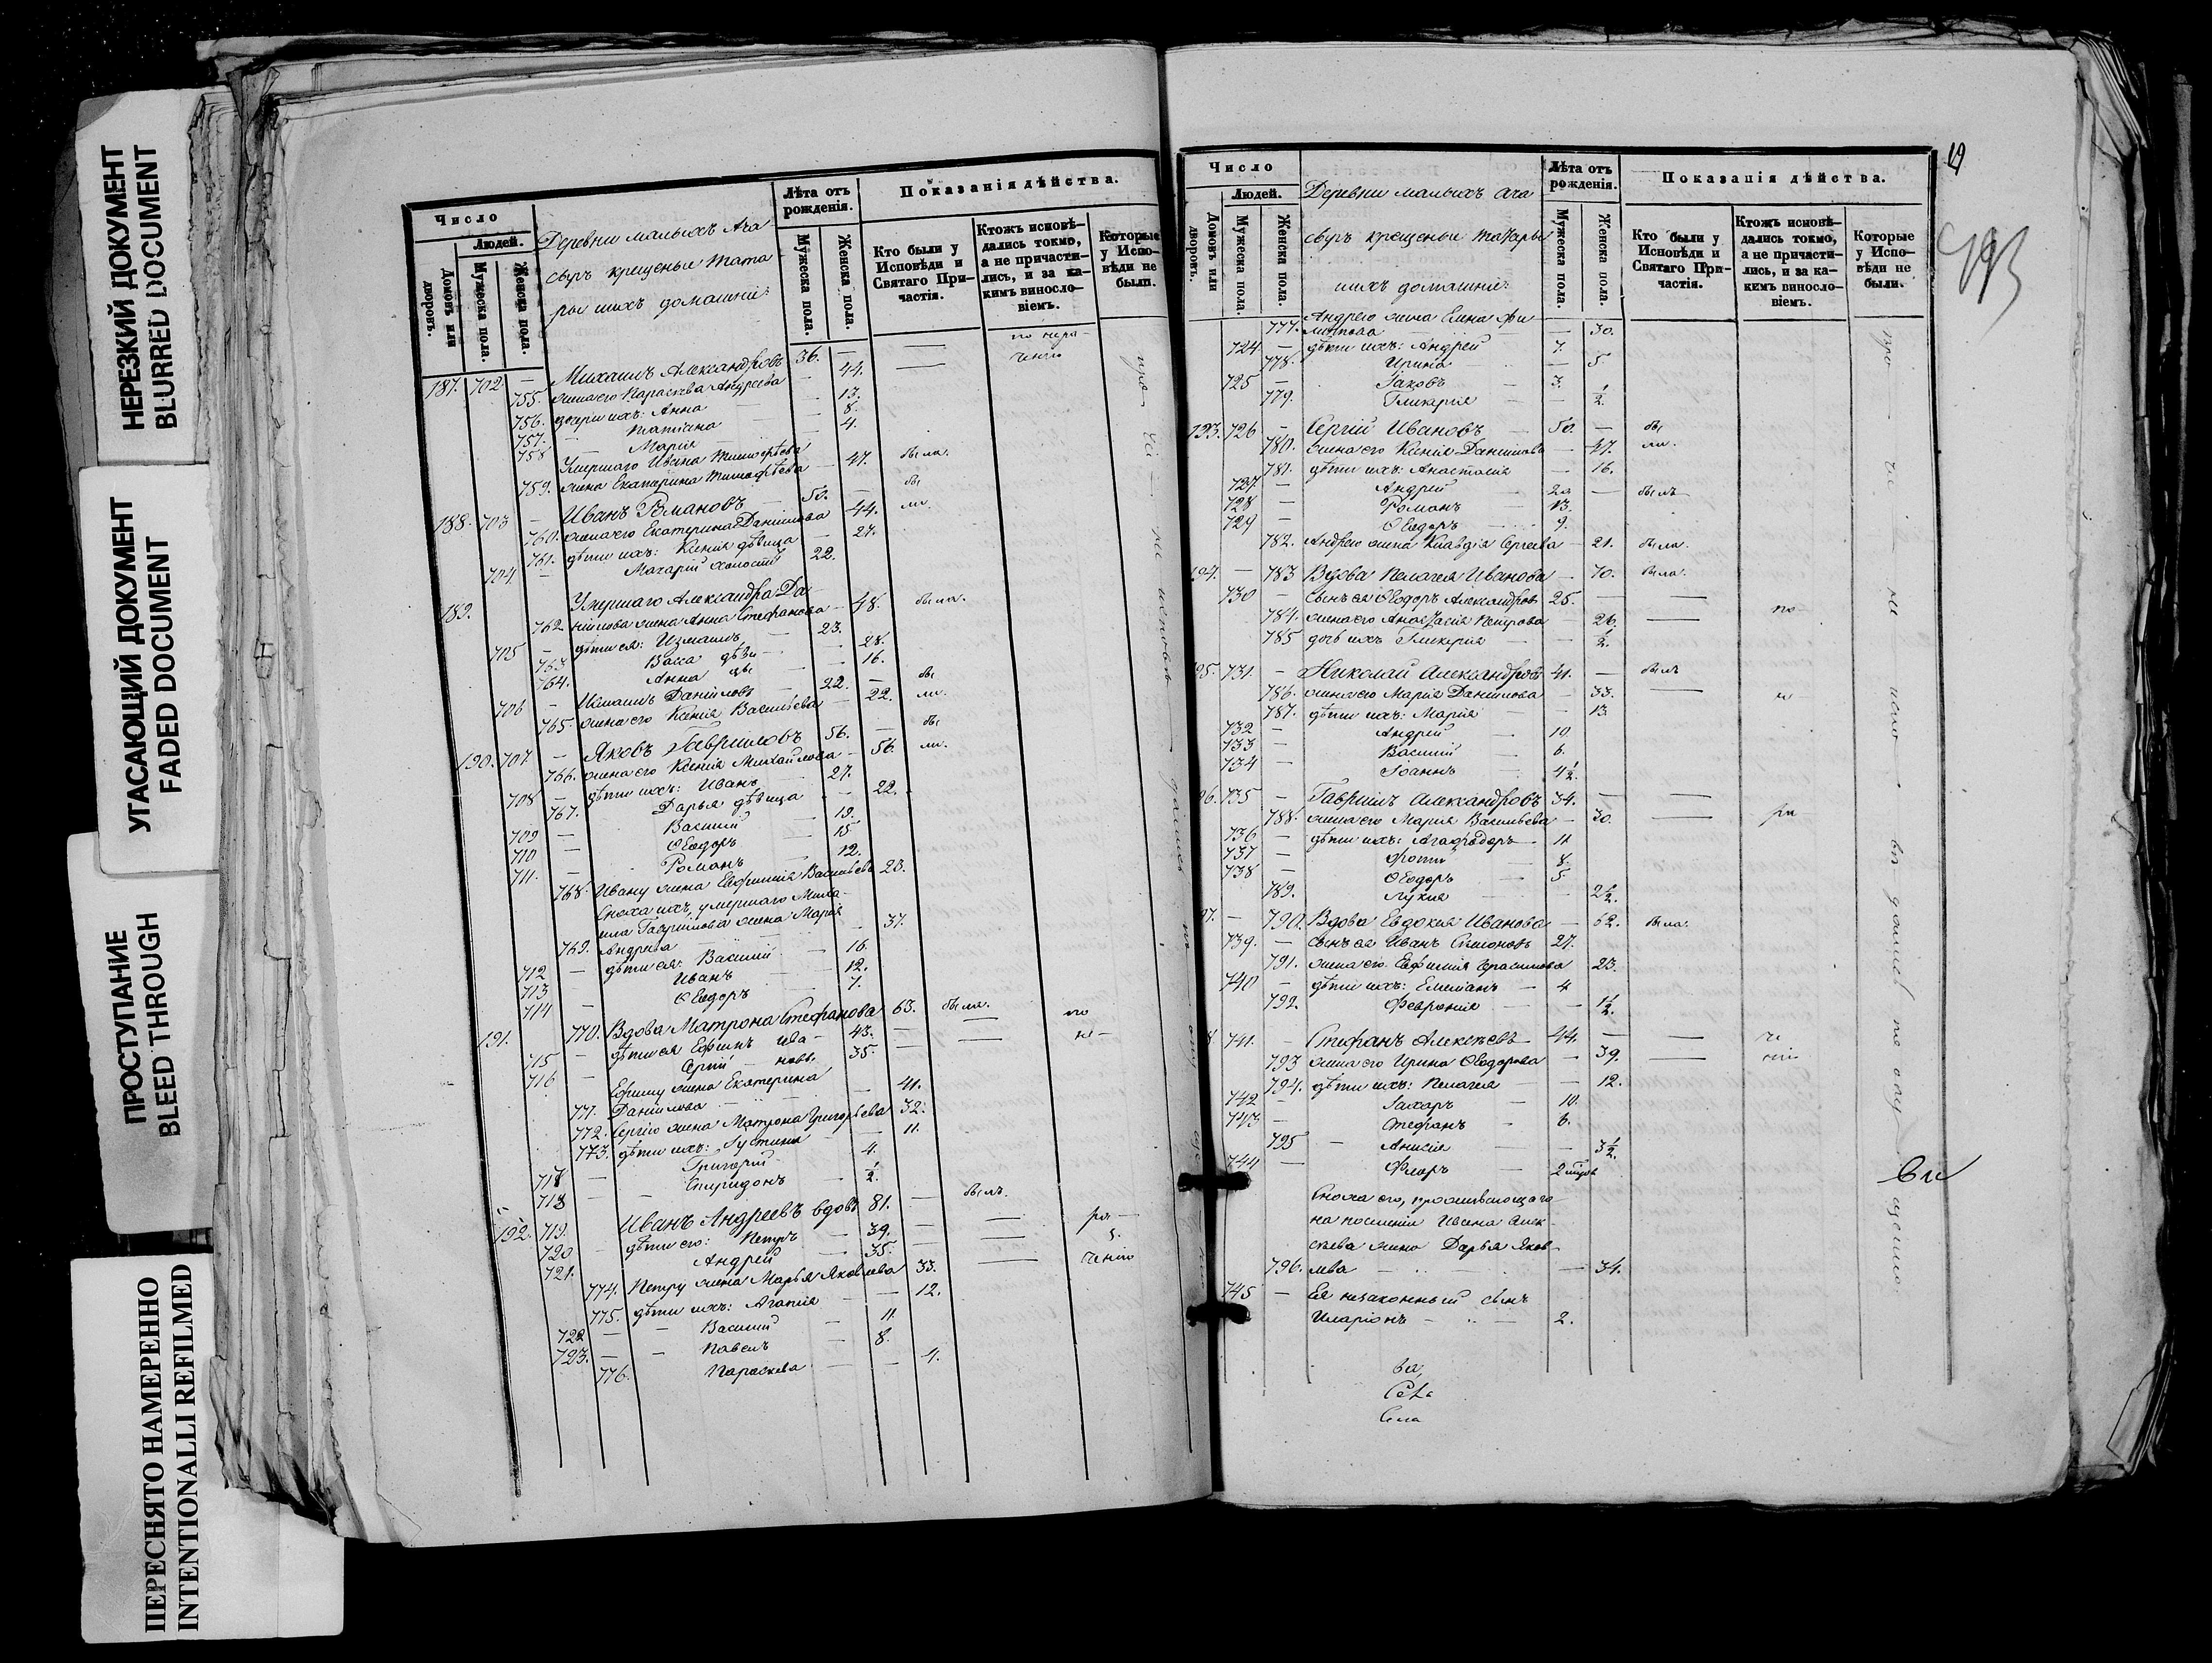 НЕРЕЗКИЙ ДОКУМЕНТ
BLURRED DOCUMENT
УГАСАЮЩИЙ ДОКУМЕНТ
FADED DOCUMENT
ПРОСТУПАНИЕ
BLEED THROUGH
ПЕРЕСНЯТО НАМЕРЕННО
INTENTIONALLI REFILMED
Число
Людей.
Домовъ или дворовъ.
Мужеска пола.
Женска пола.
Деревни малыхъ Ача-
сыръ крещеныи тата
ры ихъ домашни:
Лѣта отъ рожденія.
Мужеска пола.
Женска пола.
Показанія дѣйства.
Кто были у Исповѣди и Святаго Причастія.
Ктожъ исповѣдались токмо, а не причастились, и за какимъ винословіемъ.
Которые у Исповѣди не были.
187. 702 — Михаилъ Александровъ 36. —
755. жена его Параскева Андреева — 44.
756. дочери ихъ: Анна — 13.
757. — Татіана — 8.
758 — Марія — 4.
Умершаго Ивана Тимофѣева
759. жена Екатерина Тимофѣева — 47. была.
188. 703 — Иванъ Романовъ 50. — бы
760. жена его Екатерина Даніилова 44. ли.
761. дѣти ихъ: Ксенія дѣвица — 27.
704 — Макарій холостъ 22.
189. Умершаго Александра Да-
762 ніилова жена Анна Стефанова — 48. была.
705 — дѣти ея: Измаилъ 23.
763 Васса дѣви — 28.
764. Анна цы — 16.
706 — Измаилъ Даніиловъ 22. — бы
765. жена его Ксенія Васильева — 22. ли.
190. 707 — Яковъ Гавриловъ 56. — бы
766. жена его Ксенія Михайлова — 56. ли.
708 — дѣти ихъ: Иванъ 27.
767. Дарья дѣвица — 22.
709 — Василій 19.
710 — Ѳеодоръ 15
711. — Романъ 12.
768. Ивану жена Евфимія Васильева 23.
Сноха ихъ, умершаго Миха-
ила Гаврилова жена Марія
769. Андреева — 37.
712 — дѣти ея: Василій 16.
713 Иванъ 12.
714 — Ѳеодоръ 7.
191. 770. Вдова Матрона Стефанова 63. была.
715 — дѣти ея Ефимъ Ива- 43. —
716 — Сергій — новы. 35. —
Ефиму жена Екатерина
771. Даніилова — 41.
772. Сергію жена Матрона Григорьева 32.
773. дѣти ихъ: Іустина — 11.
717 Григорій 4.
718 — Спиридонъ ½.
192. 719. Иванъ Андреевъ вдовъ 81. — былъ.
720 — дѣти его: Петръ — 39. —
721. Андрей — 35.
774. Петру жена Марья Яковлева 33.
775. дѣти ихъ: Агапія — 12.
722 — Василій 11.
723. — Павелъ 8.
776. Параскева — 4.
19
Число
Людей.
Домовъ или дворовъ.
Мужеска пола.
Женска пола.
Деревни малыхъ Ача
сыръ крещеныи татары
ихъ домашни:
Лѣта отъ рожденія.
Мужеска пола.
Женска пола.
Показанія дѣйства.
Кто были у Исповѣди и Святаго Причастія.
Ктожъ исповѣдались токмо, а не причастились, и за какимъ винословіемъ.
Которые у Исповѣди не были.
Андрею жена Елена Фи
777. липпова — 30.
724 — дѣти ихъ: Андрей 7.
778. Ирина — 5
725 — Іаковъ 3.
779. Гликерія — ½.
193. 726 — Сергій Ивановъ 50. — бы
780. жена его Ксенія Даніилова — 47. ли.
781. дѣти ихъ: Анастасія — 16.
727. — Андрей 20 — былъ
728 — Романъ 13.
729 — Ѳеодоръ 9.
782. Андрею жена Клавдія Сергеева — 21. была.
194. — 783 Вдова Пелагея Иванова — 70. была.
730 — Сынъ ея Ѳеодоръ Александров 25. —
784. жена его Анастасія Петрова — 26.
785 дочь ихъ Гликерія — ½.
95. 731. — Николай Александровъ 41. — былъ
786. жена его Марія Даніилова — 33. —
787. дѣти ихъ: Марія — 13
732 — Андрей 10
733 — Василій 6.
734 — Іоаннъ 4½.
96. 735 — Гавріилъ Александровъ 34. —
788. жена его Марія Васильева — 30. —
736 — дѣти ихъ: Агафодоръ 11
737 — Фотій 8.
738 — Ѳеодоръ 5
789. Лукія — 2½.
97. — 790. Вдова Евдокія Иванова — 62. была.
739. — сынъ ея Иванъ Симоновъ 27.
791. жена его Евфимія Герасимова 23.
740 — дѣти ихъ: Емеліанъ — 4
792. Февронія — 1½.
8. 741. — Стефанъ Алексѣевъ 44. —
793 жена его Ирина Ѳеодорова — 39.
794. дѣти ихъ: Пелагея — 12.
742 — Захаръ 10.
743 — Стефанъ 6.
795 — Анисія — 3½.
744 — Флоръ 2
Сноха его, проживающаго
на поселеніи Ивана Алек-
сѣева жена Дарья Яков-
796. лева — 34.
745 — Ея незаконный сынъ
Иларіонъ — 2.